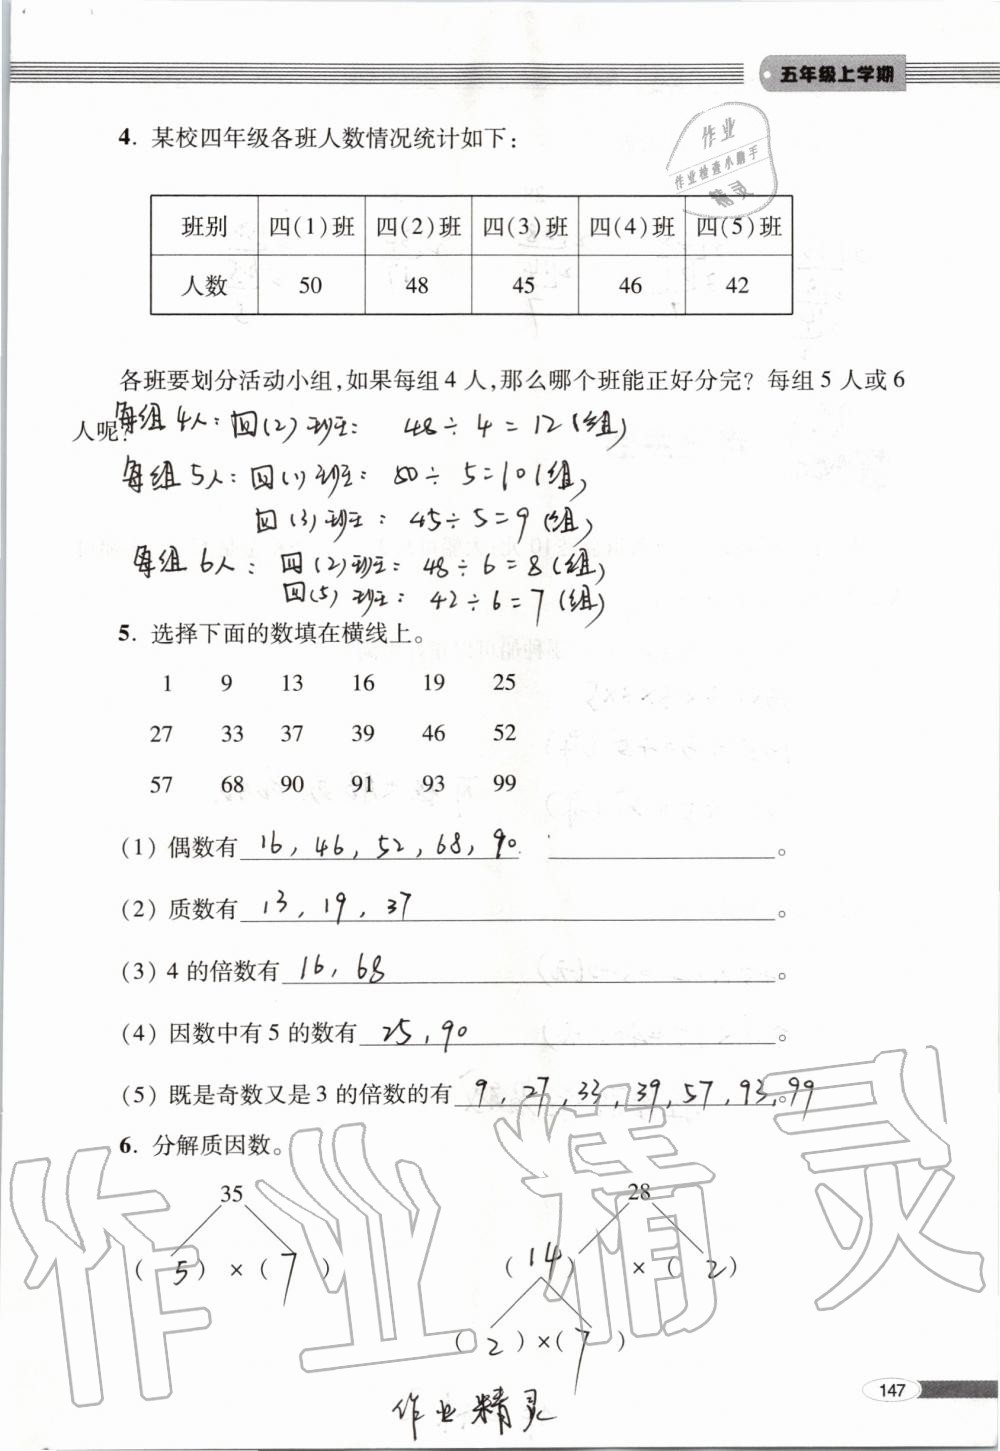 五年级上学期
作业
作业检查小助手
精灵
4. 某校四年级各班人数情况统计如下：
班别 四(1)班 四(2)班 四(3)班 四(4)班 四(5)班
人数 50 48 45 46 42
各班要划分活动小组,如果每组4人,那么哪个班能正好分完? 每组5人或6
人呢?
每组4人: 四(2)班: 48÷4=12(组)
每组5人: 四(1)班: 50÷5=10(组)
四(3)班: 45÷5=9(组)
每组6人: 四(2)班: 48÷6=8(组)
四(5)班: 42÷6=7(组)
5. 选择下面的数填在横线上。
1 9 13 16 19 25
27 33 37 39 46 52
57 68 90 91 93 99
(1) 偶数有 16, 46, 52, 68, 90.。
(2) 质数有 13, 19, 37。
(3) 4的倍数有 16, 68。
(4) 因数中有5的数有 25, 90。
(5) 既是奇数又是3的倍数的有 9, 27, 33, 39, 57, 93, 99。
6. 分解质因数。
35 28
(5)×(7) (14)×(2)
(2)×(7)
作业精灵
作业精灵
147